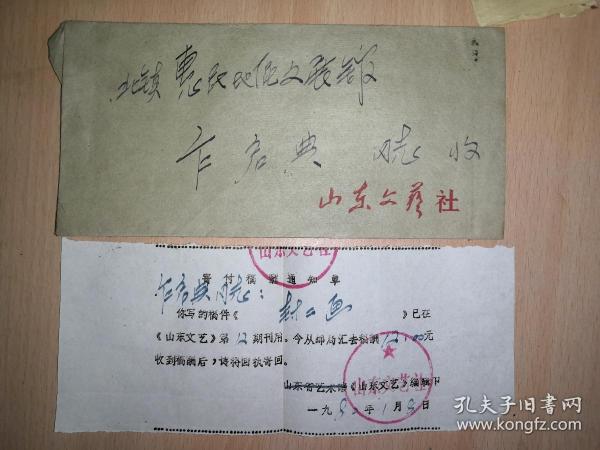 北镇 惠民地区文联
卞启典 同志 收
山东文艺社
山东文艺社
寄付稿酬通知单
卞启典同志：
你写的稿件《封二画》已在
《山东文艺》第12期刊用。今从邮局汇去稿酬12.00元
收到稿酬后，请将回执寄回。
山东省艺术馆《山东文艺》编辑部
山东文艺社
一九八〇年1月8日
孔夫子旧书网
www.kongfz.com